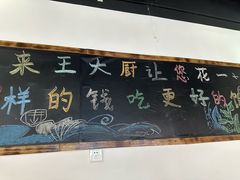 来王大厨让您花一
样的钱吃更好的